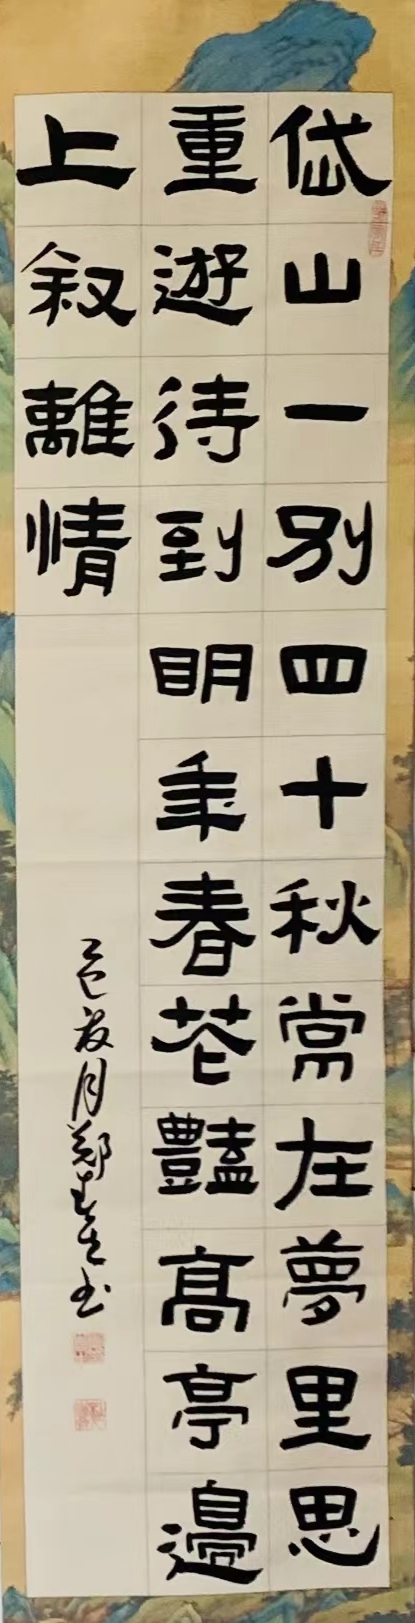 岱山一别四十秋常在夢里思
重遊待到明年春芲豔高亭邊
上叙離情
乙巳 月鄭 書